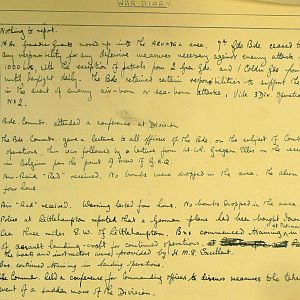 WAR DIARY
Nothing to report.
Grenadier Guards moved up into the area. 7th Gds Bde ceased to
any responsibility for any defensive measures necessary against enemy attack
1000 hrs, with the exception of patrols from 2 Gren Gds. and 1 Coldm Gds from
until daylight daily. The Bde retained certain responsibilities to support the
in the event of enemy air-born or sea-born attacks. Vide 3 Div Operation
No 2.
Bde Comdr attended a conference at Division
The Bde Comdr. gave a lecture to all officers of the Bde, on the subject of Combined
operations, this was followed by a lecture from Lt. Col. Grigson Ellis on the
in Belgium from the point of view of G.H.Q.
Air-Raid "Red" received. No bombs were dropped in the area. The alarm
four hours.
Air-"Red" received. Warning lasted four hours. No bombs dropped in the area.
Police at Littlehampton reported that a German plane had been brought down
Sea three miles S.W. of Littlehampton. Bns commenced training
of assault landing-craft for combined operations at
the boats and instructors were provided by H.M.S Excellent.
Bns continued training in
Comdr. held a conference for Commanding officers to discuss measures to be taken
event of a sudden move of the Division